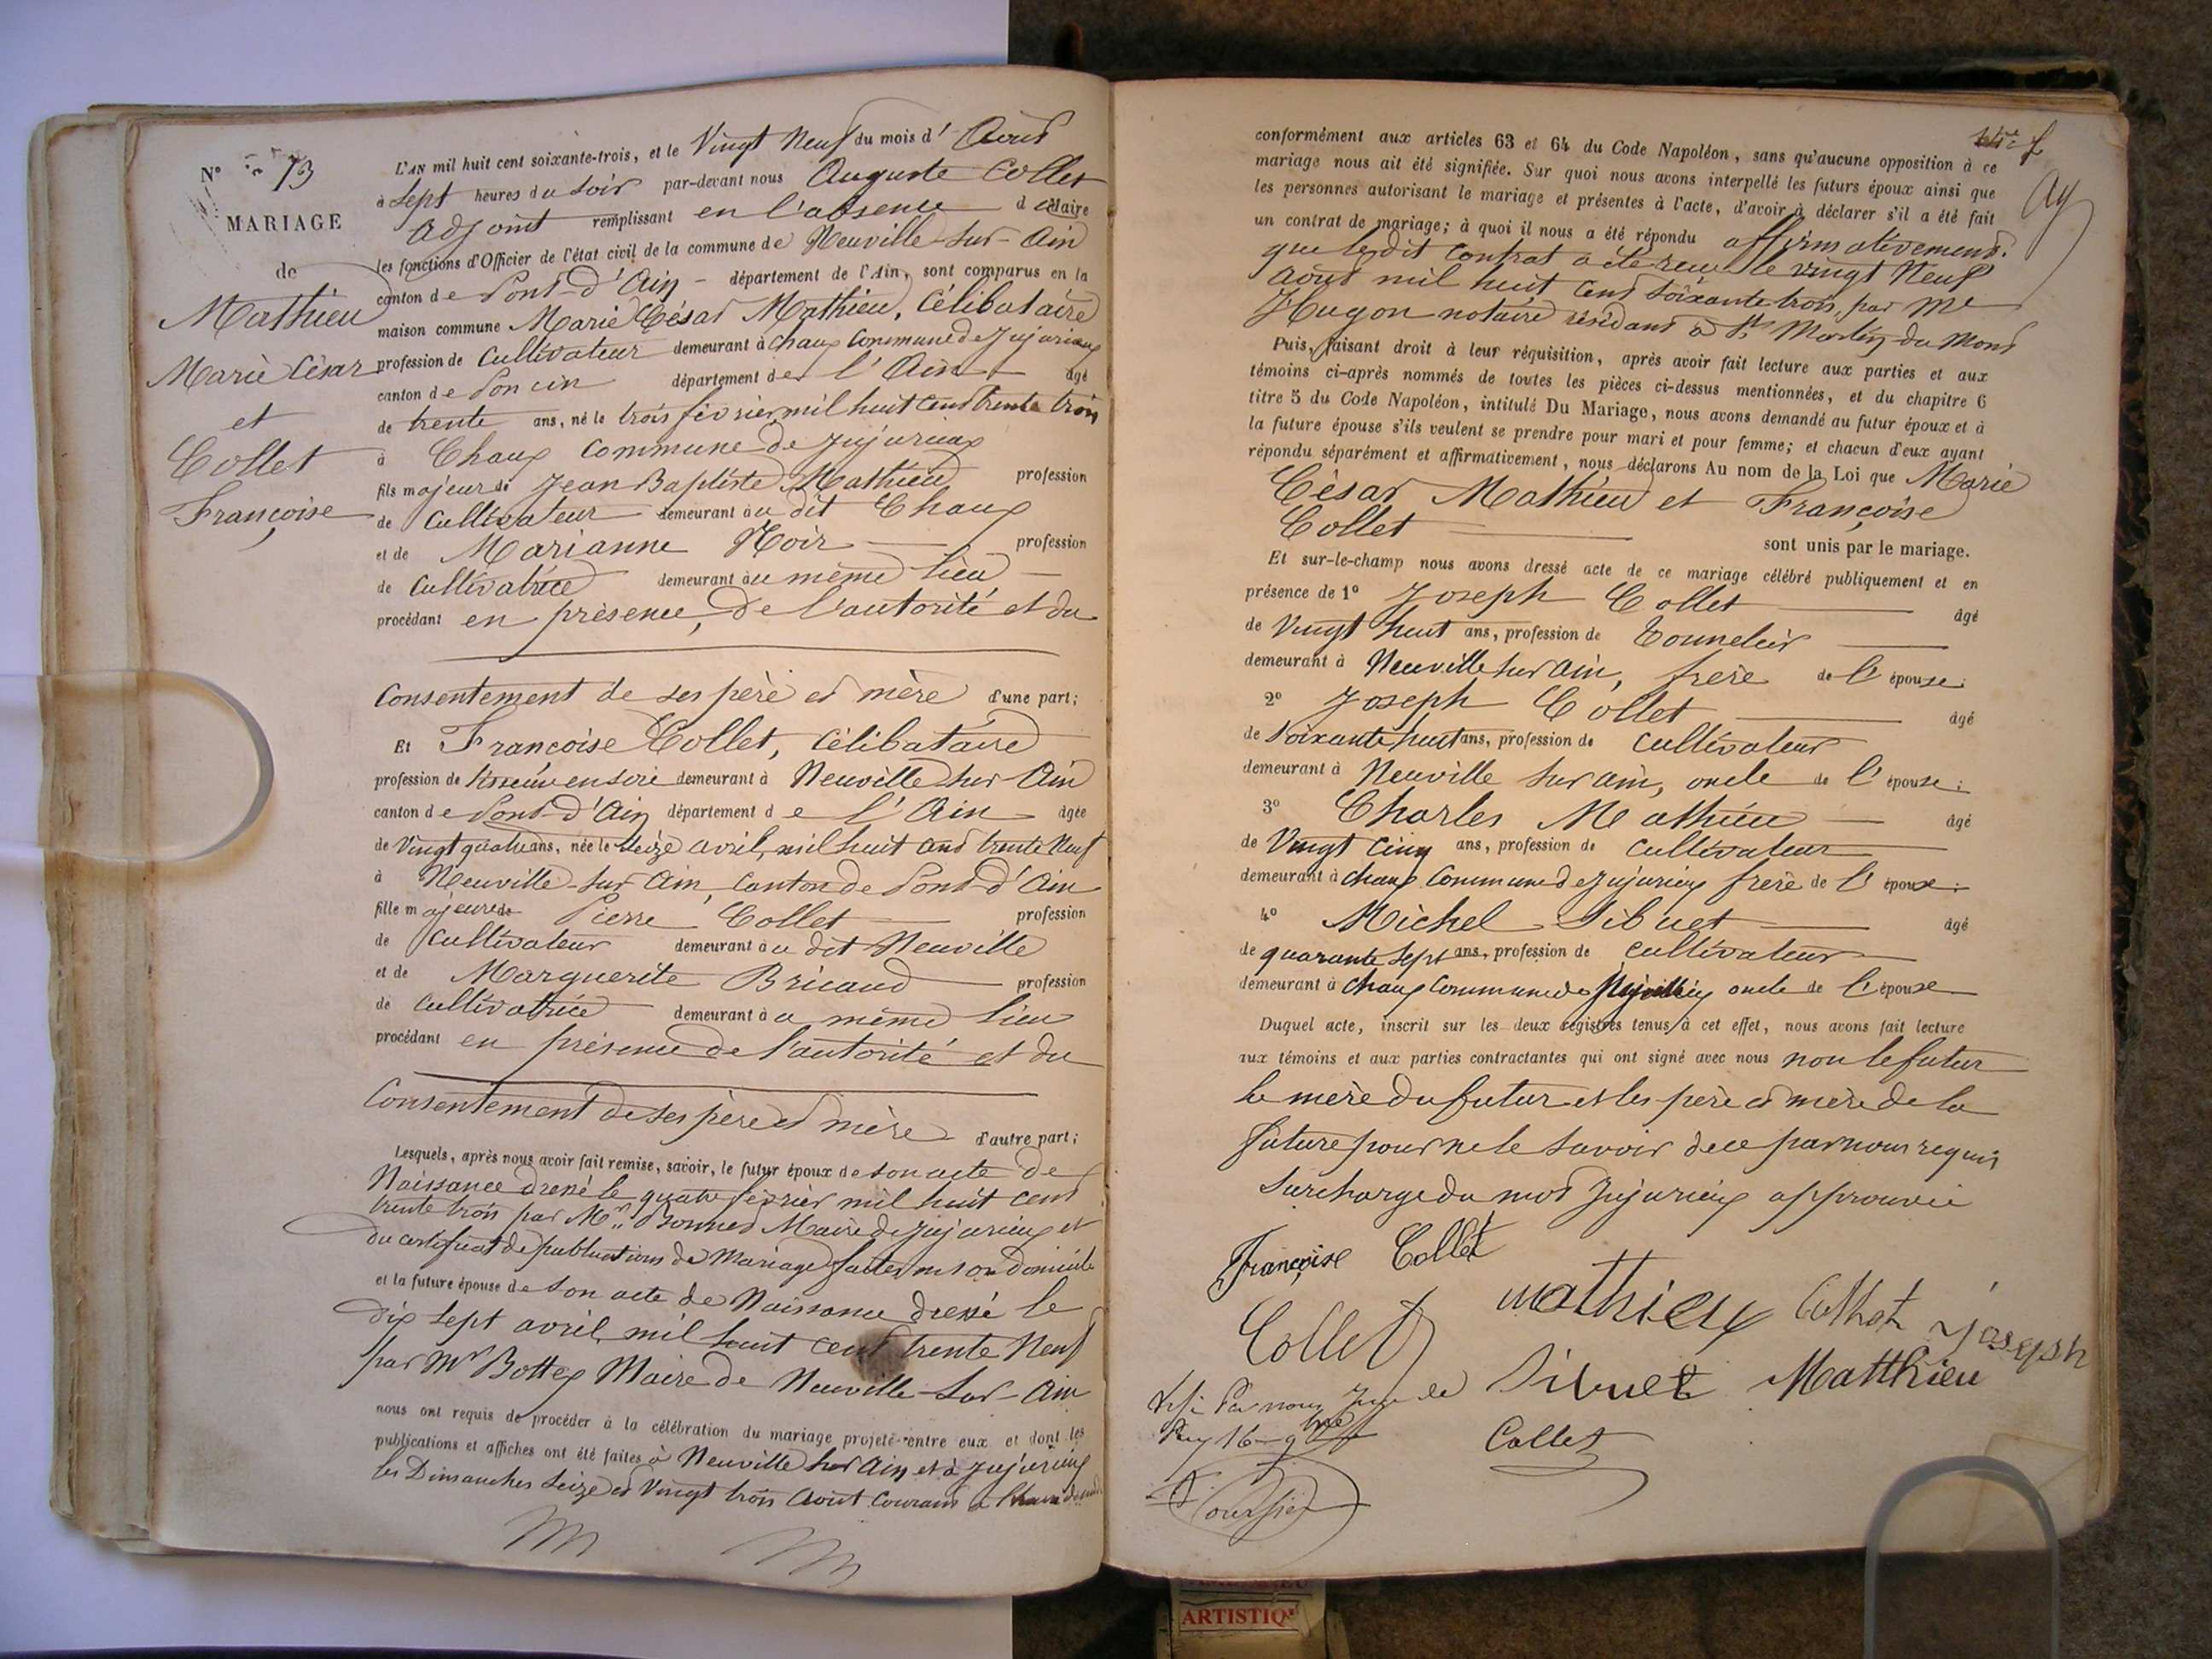 N° 13
MARIAGE
de
Mathieu
Marie César
et
Collet
Françoise
L'AN mil huit cent soixante-trois, et le Vingt Neuf du mois d' Aout
à Sept heures du Soir par-devant nous Auguste Collet
adjoint remplissant en l'absence du Maire
les fonctions d'Officier de l'état civil de la commune de Neuville-sur-Ain
canton de Pont-d'Ain - département de l'Ain, sont comparus en la
maison commune Marie César Mathieu, Célibataire
profession de Cultivateur demeurant à Chaux Commune de Jujurieux
canton de Poncin département de l'Ain âgé
de trente ans, né le trois février mil huit cent trente trois
à Chaux Commune de Jujurieux
fils majeur de Jean Baptiste Mathieu profession
de Cultivateur demeurant au dit Chaux
et de Marianne Noir profession
de Cultivatrice demeurant au même lieu
procédant en présence, de l'autorité et du
Consentement de ses père et mère d'une part;
Et Françoise Collet, Célibataire
profession de en soie demeurant à Neuville sur Ain
canton de Pont-d'Ain département de l'Ain âgée
de Vingt quatre ans, née le Seize avril, mil huit cent trente Neuf
à Neuville-sur-Ain, Canton de Pont-d'Ain
fille majeure de Pierre Collet profession
de Cultivateur demeurant au dit Neuville
et de Marguerite Bricaud profession
de Cultivatrice demeurant au même lieu
procédant en présence de l'autorité et du
Consentement de ses père et mère d'autre part;
Lesquels, après nous avoir fait remise, savoir, le futur époux de son acte de
Naissance dressé le quatre février mil huit cent
trente trois par Mr. Bonnet Maire de Jujurieux et
du certificat de publications de Mariage faites en son Domicile
et la future épouse de son acte de Naissance dressé le
dix sept avril, mil huit cent trente Neuf
par Mr Bottex Maire de Neuville-sur-Ain
nous ont requis de procéder à la célébration du mariage projeté entre eux et dont les
publications et affiches ont été faites à Neuville sur Ain et à Jujurieux
les Dimanches Seize et Vingt trois Aout Courant à l'heure de
conformément aux articles 63 et 64 du Code Napoléon, sans qu'aucune opposition à ce
mariage nous ait été signifiée. Sur quoi nous avons interpellé les futurs époux ainsi que
les personnes autorisant le mariage et présentes à l'acte, d'avoir à déclarer s'il a été fait
un contrat de mariage; à quoi il nous a été répondu affirmativement.
que le dit contrat a été reçu le vingt Neuf
aout mil huit cent soixante trois, par Me
Hugon notaire résidant à St Martin du Mont
Puis, faisant droit à leur réquisition, après avoir fait lecture aux parties et aux
témoins ci-après nommés de toutes les pièces ci-dessus mentionnées, et du chapitre 6
titre 5 du Code Napoléon, intitulé Du Mariage, nous avons demandé au futur époux et à
la future épouse s'ils veulent se prendre pour mari et pour femme; et chacun d'eux ayant
répondu séparément et affirmativement, nous déclarons Au nom de la Loi que Marie
César Mathieu et Françoise
Collet sont unis par le mariage.
Et sur-le-champ nous avons dressé acte de ce mariage célébré publiquement et en
présence de 1° Joseph Collet âgé
de Vingt huit ans, profession de Tonnelier
demeurant à Neuville sur Ain, frère de l'épouse;
2° Joseph Collet âgé
de Soixante huit ans, profession de cultivateur
demeurant à Neuville sur Ain, oncle de l'épouse;
3° Charles Mathieu âgé
de Vingt Cinq ans, profession de Cultivateur
demeurant à Chaux Commune de Jujurieux frère de l'époux;
4° Michel Sibuet âgé
de quarante sept ans, profession de cultivateur
demeurant à Chaux Commune de Jujurieux oncle de l'époux
Duquel acte, inscrit sur les deux registres tenus à cet effet, nous avons fait lecture
aux témoins et aux parties contractantes qui ont signé avec nous non le futur
la mère du futur et les père et mère de la
future pour ne le savoir de ce par nous requis
Surcharge du mot Jujurieux approuvée
Françoise Collet
Mathieu
Collet Joseph
Collet
Sibuet Matthieu
Collet
ARTISTIQ